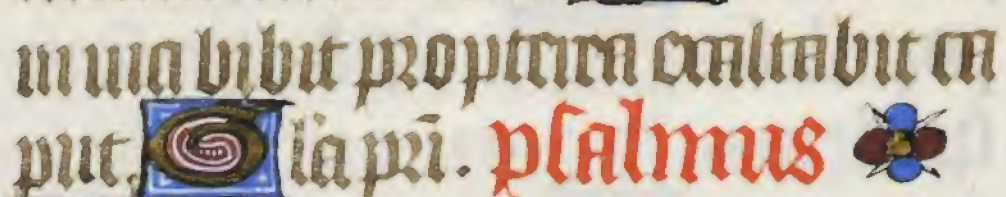 in uia bibit propterea exaltabit ca
put. Gl'a pr̄i. psalmus